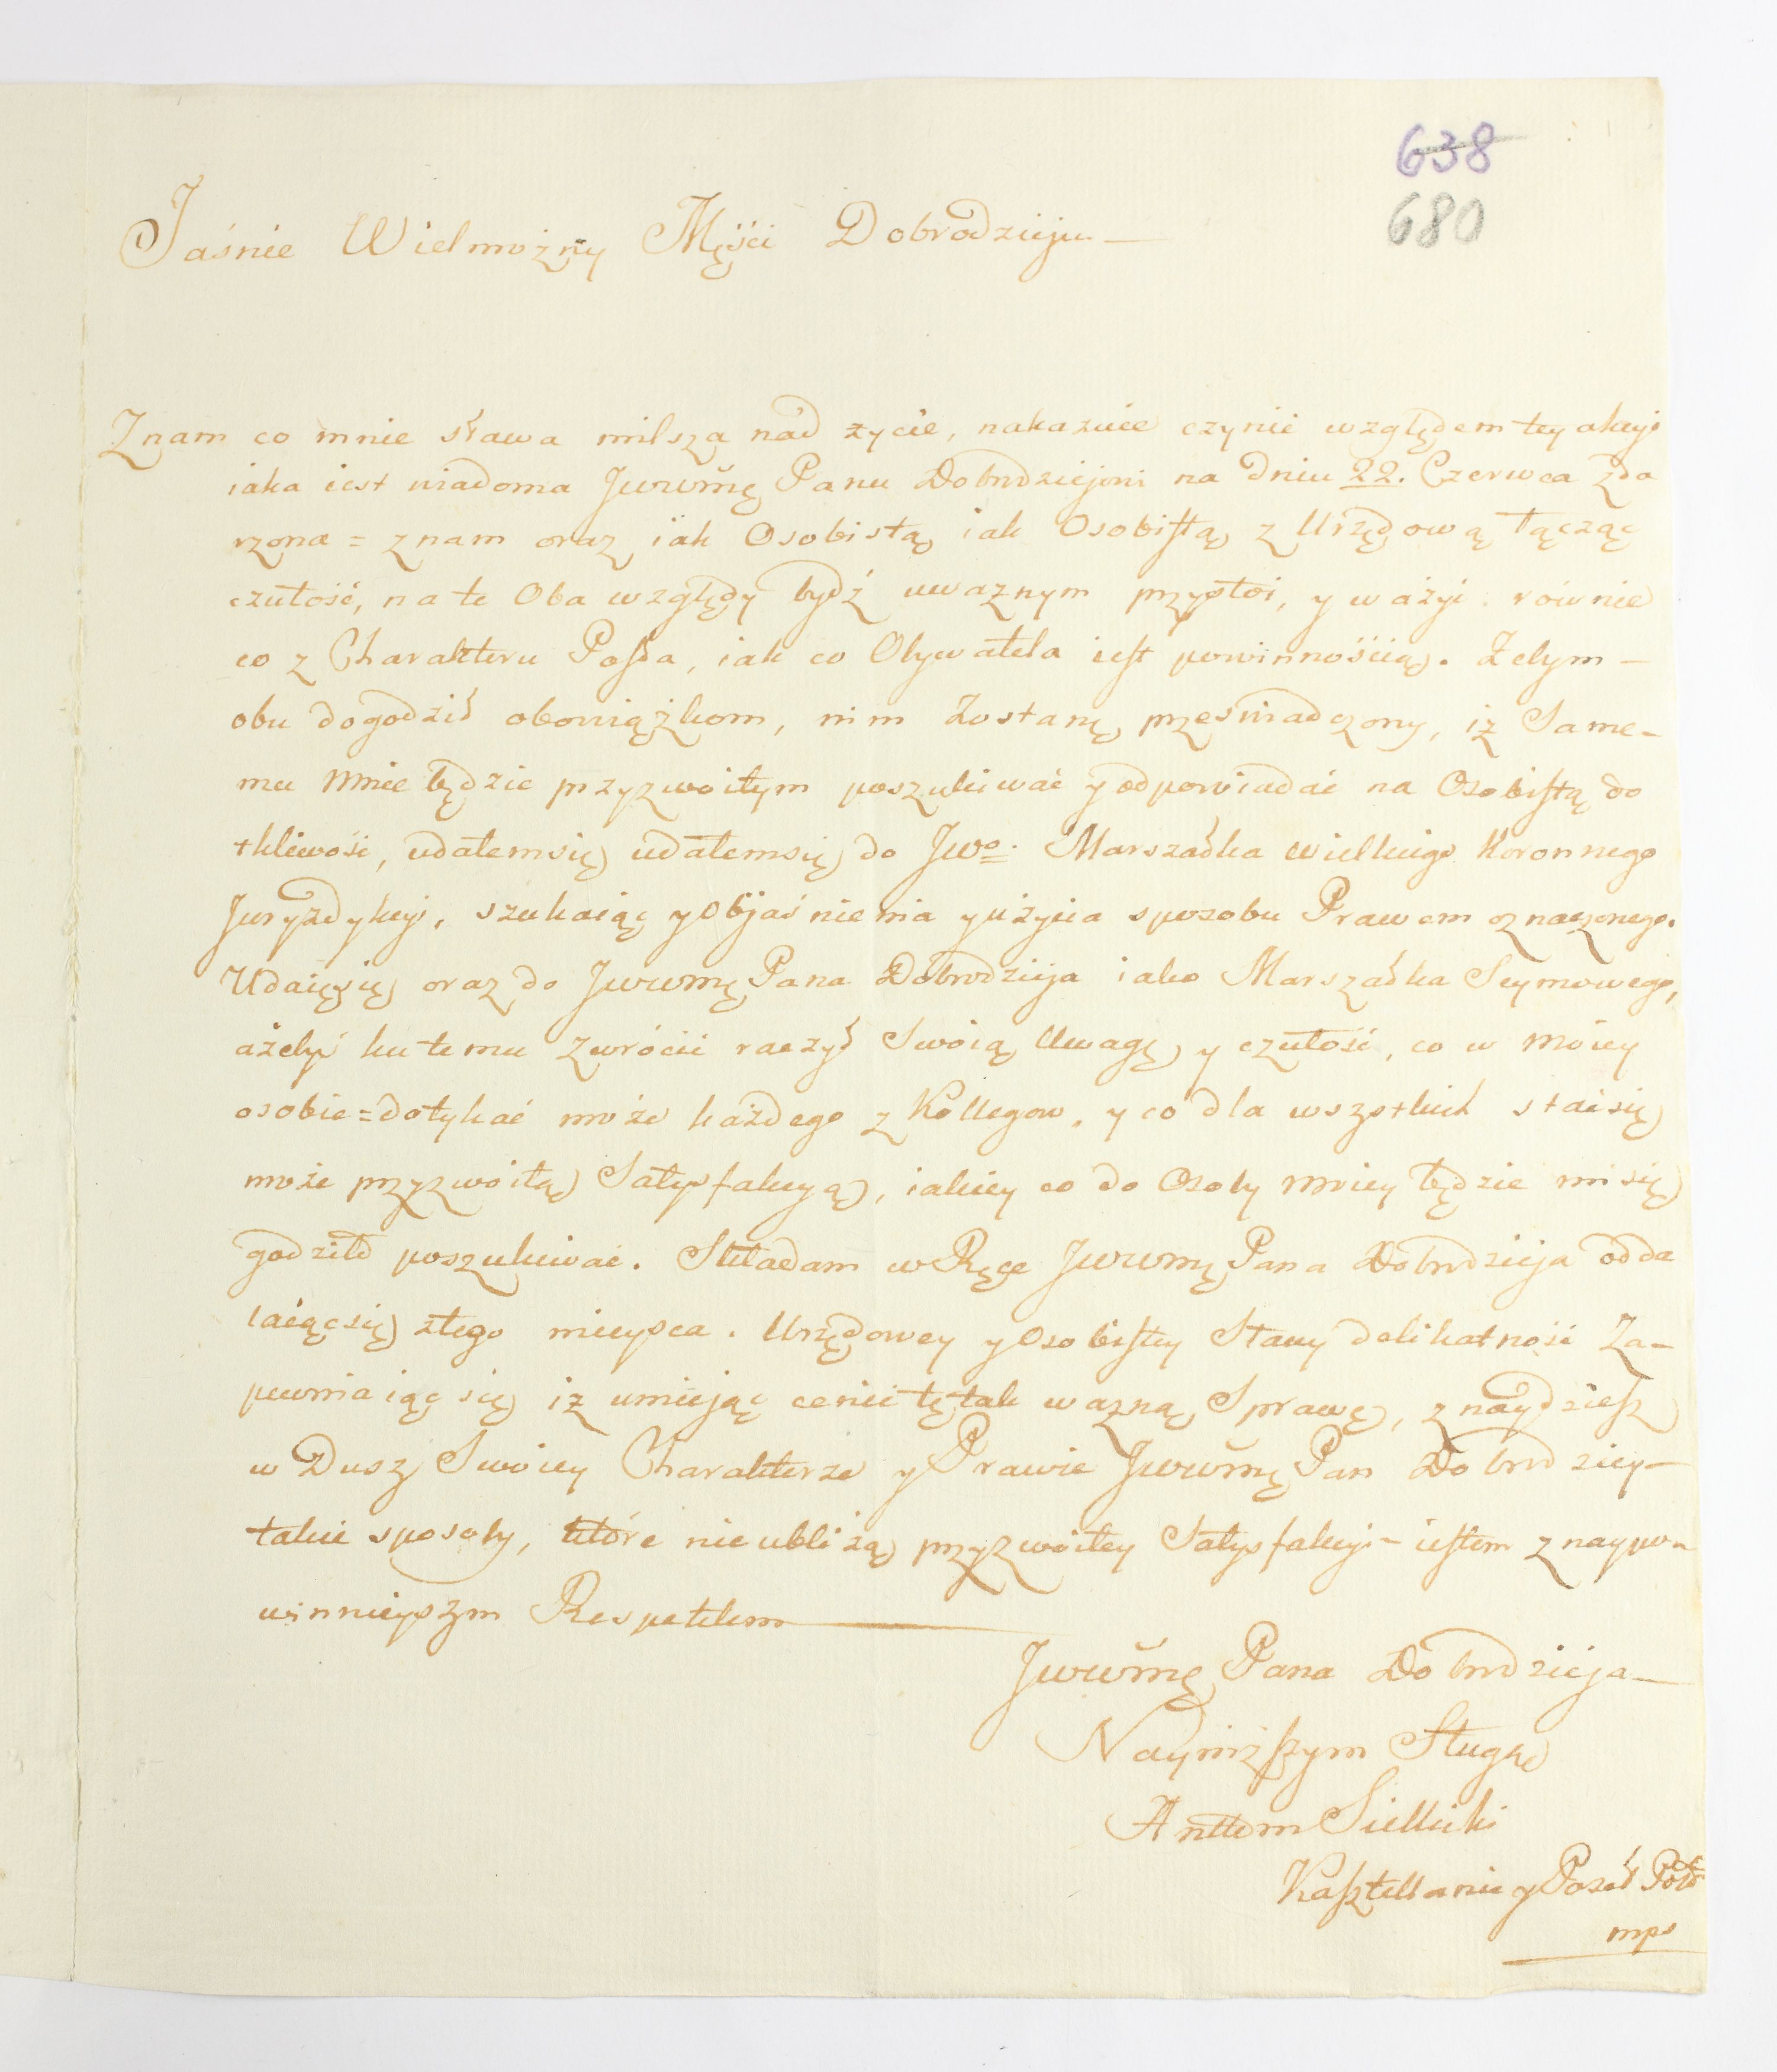 638
680
Jaśnie Wielmożny Mości Dobrodzieju
Znam co mnie sława milsza nad życie, nakazuie czynić względem tey akcyi
iaka iest wiadoma Jwwmę Panu Dobrodziejowi na dniu 22. Czerwca zda
rzona = znam oraz iak Osobistą iak Osobistą z Urzędową łącząc
czułość, na te Oba względy bydź uważnym przystoi, y ważyć równie
co z Charakteru Posła, iak co Obywatela iest powinnością. Żebym —
obu dogodził obowiązkom, nim zostanę przeświadczony, iż Same-
mu mnie będzie przyzwoitym poszukiwać y odpowiadać na Osobistą do
tkliwość, udałemsię udałemsię do Jwo. Marszałka wielkiego Koronnego
Juryzdykcyi, szukaiąc y Objaśnienia y użycia sposobu Prawem oznaczonego.
Udaięsię oraz do Jwwmę Pana Dobrodzieja iako Marszałka Seymowego,
ażebyś ku temu zwrócić raczył Swoią Uwagę y czułość, co w Moiey
osobie = dotykać może każdego z Kollegow, y co dla wszystkich staćsię
może przyzwoitą Satysfakcyą, iakiey co do Osoby moiey będzie mi się
godziło poszukiwać. Składam w Ręce Jwwmę Pana Dobrodzieja odda
laiącsię ztego mieysca. Urzędowey y Osobistey Sławy delikatność Za-
pewniaiąc się iż umiejąc cenić tę tak ważną Sprawę, znaydziesz
w Duszy Swoiey Charakterze y Prawie Jwwmę Pan Dobrodziey —
takie sposoby, które nie ubliżą przyzwoitey Satysfakcyi - iestem z naypo-
winnieyszym Respektem
Jwwmę Pana Dobrodzieja —
Nayniższym Sługą
Antoni Sielicki
Kasztellanic y Poseł Połł
mps